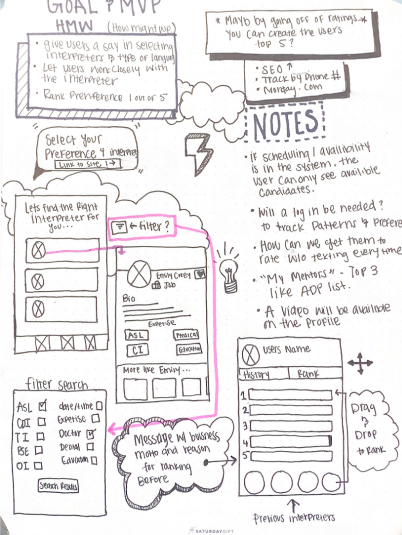 GOAL & MVP
HMW (How might we)
• give users a say in selecting
interpreters & type of language
• Let users work closely with
the interpreter
• Rank Preference 1 out of 5
* Mayb by going off of ratings... *
you can create the users
top 5?
• SEO ↑
• Track by phone #
• Monday.com
NOTES
• If scheduling / availibility
is in the system. the
user can only see availible
candidates.
• Will a log in be needed?
to track Patterns & Prefere
• How can we get them to
rate w/o texting everytime
• "My Mentors" - Top 3
like ADP list.
• A video will be available
on the profile
Select your
Preference & interpreter
Link to site 1 →
Lets find the Right
interpreter for
you...
← filter?
Emiry Carey
Job
Bio
Expertise
ASL
Medical
CI
Education
More like Emiry...
filter search
ASL
date/time
CDI
Expertise
TI
Doctor
PSE
Dental
OI
Education
Search Results
Message w/ business
moto and reason
for ranking
Before
Users Name
History
Rank
1
2
3
4
5
Drag
&
Drop
to Rank
Previous interpreters
#SATURDAYGIFT